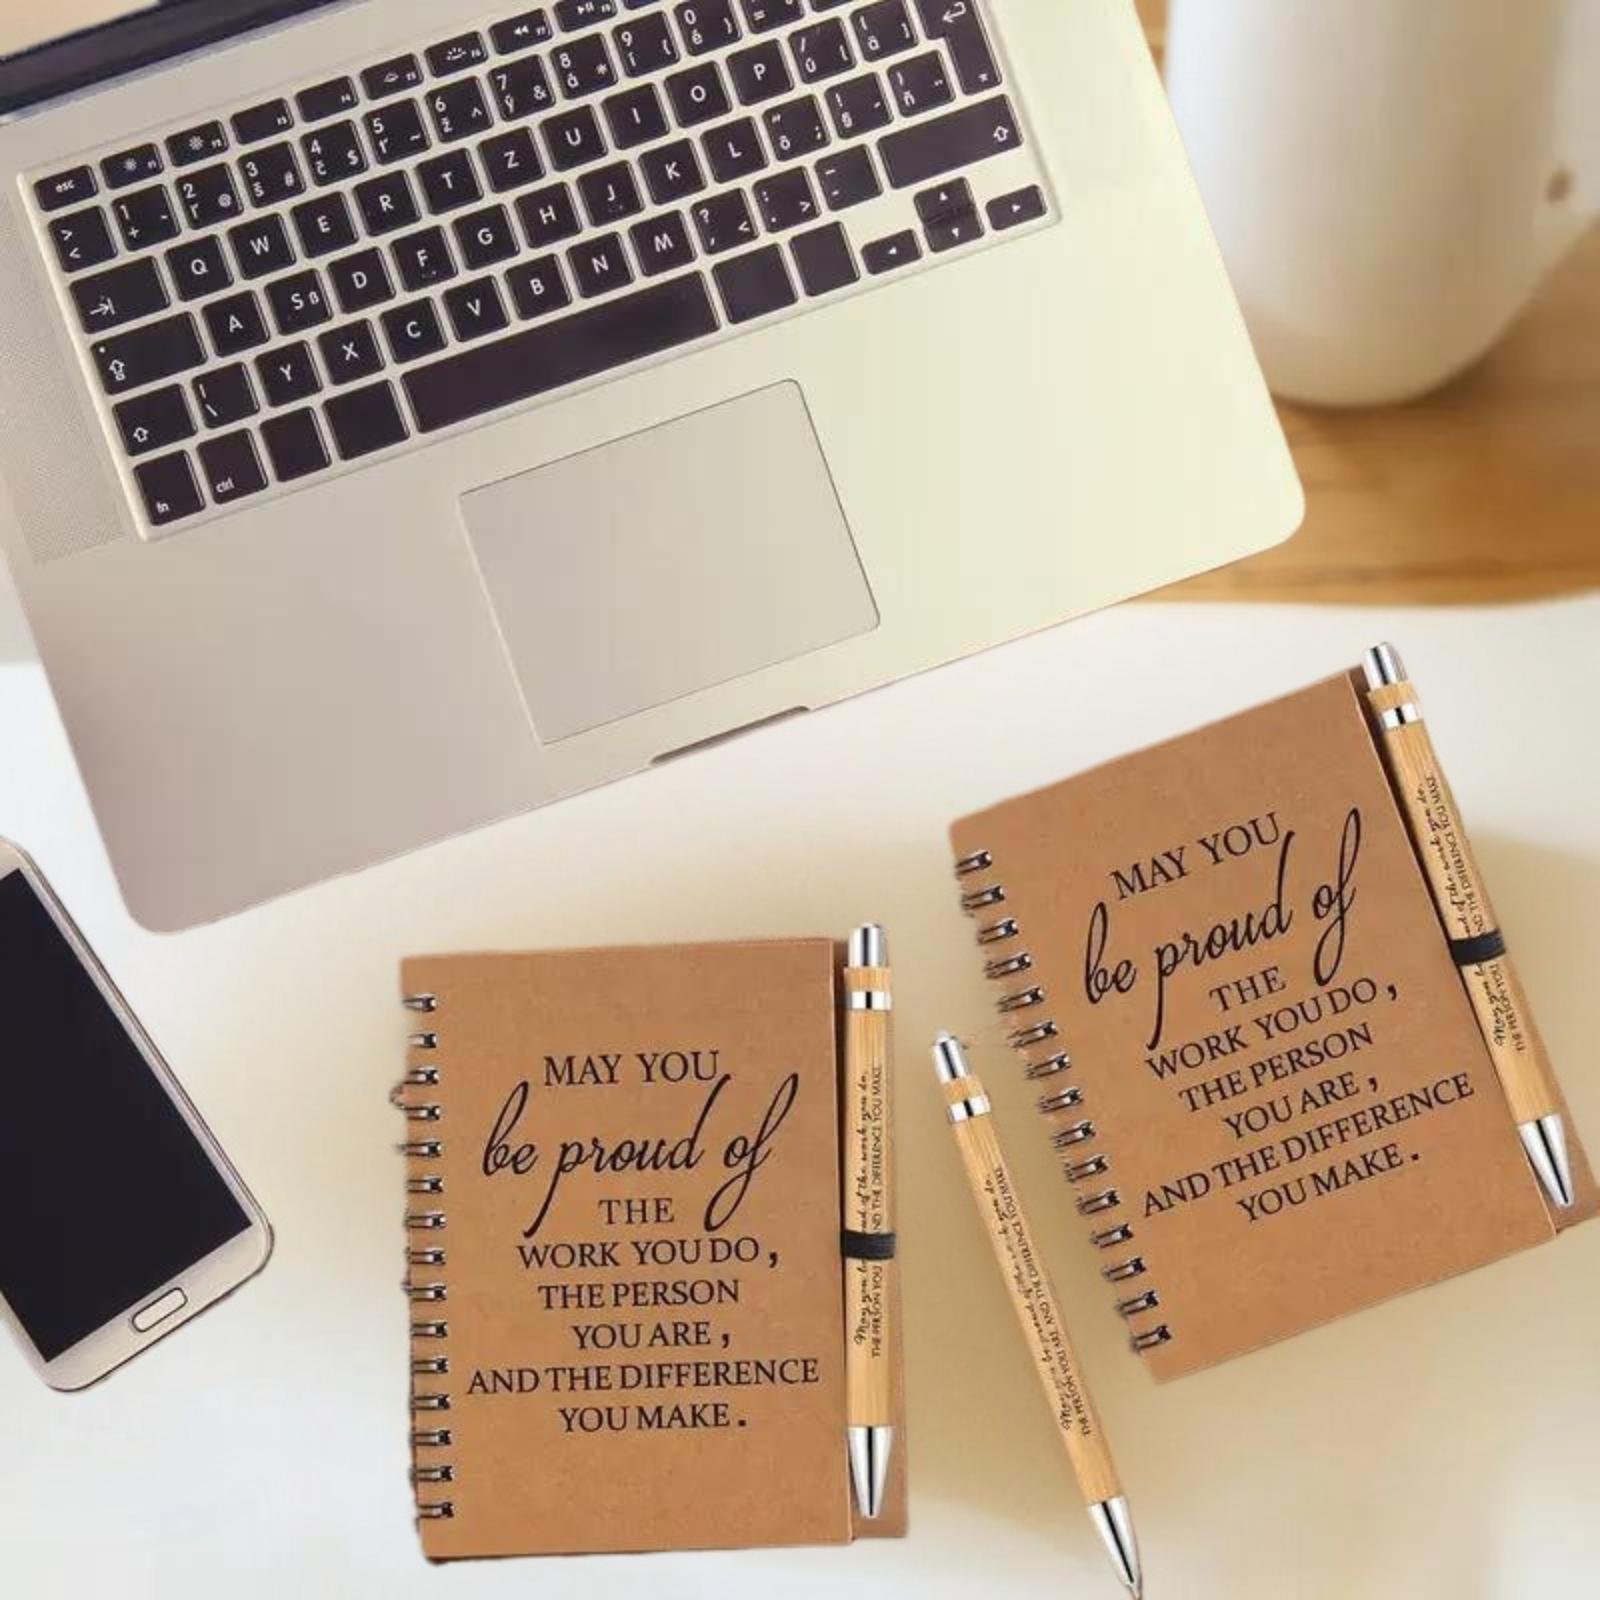 esc
> 1 2 3 4 5 6 7 8 9 0
< + ľ @ š # č $ ť ~ ž ^ ý & á * í ( é ) =
Q W E R T Z U I O P / ú
A S ß D F G H J K L " ô ; ! §
\ Y X C V B N M ? , < : . > - _
fn ctrl
MAY YOU
be proud of
THE
WORK YOU DO,
THE PERSON
YOU ARE,
AND THE DIFFERENCE
YOU MAKE.
May you be proud of the work you do,
THE PERSON YOU AND THE DIFFERENCE YOU MAKE
MAY YOU
be proud of
THE
WORK YOU DO,
THE PERSON
YOU ARE,
AND THE DIFFERENCE
YOU MAKE.
May you be proud of the work you do,
THE PERSON YOU AND THE DIFFERENCE YOU MAKE
May you be proud of the work you do,
THE PERSON YOU ARE, AND THE DIFFERENCE YOU MAKE